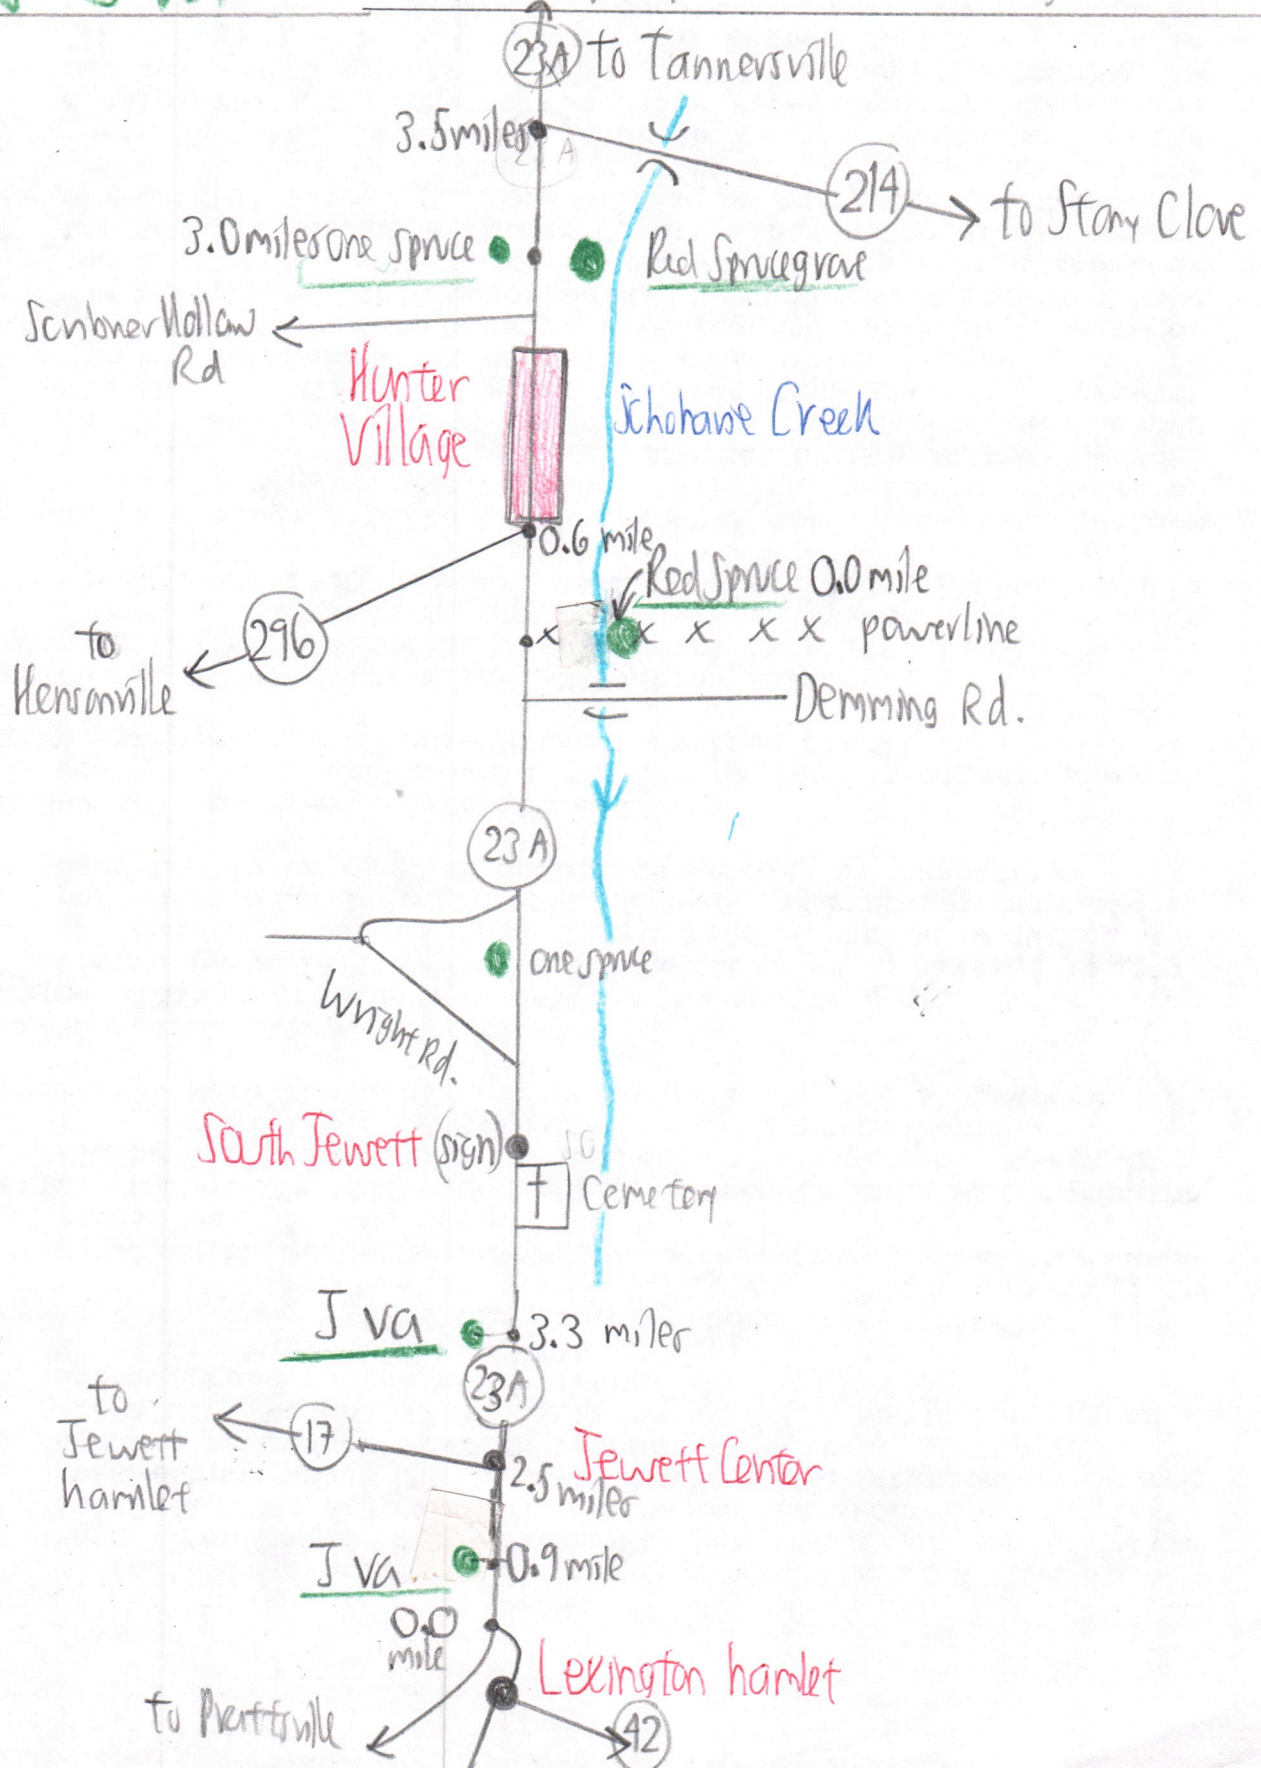 23A to Tannersville
3.5 miles
214
to Stony Clove
3.0 miles one spruce
Red Spruce grove
Scribner Hollow
Rd
Hunter
Village
Schoharie Creek
0.6 mile
Red Spruce 0.0 mile
296
to
Hensonville
x x x x x powerline
Demming Rd.
23A
one spruce
Wright Rd.
South Jewett (sign)
Cemetery
J va
3.3 miles
23A
to
Jewett
hamlet
17
Jewett Center
2.5
miles
J va
0.9 mile
0.0
mile
Lexington hamlet
to Prattsville
42